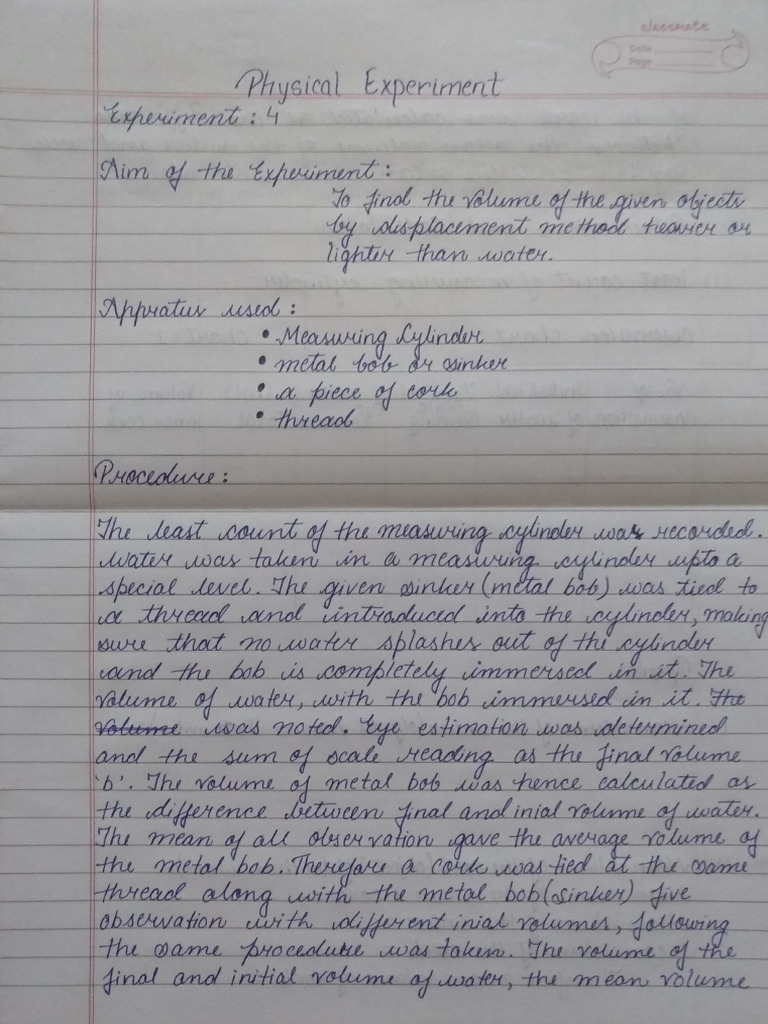 classmate
Date
Page
Physical Experiment
Experiment : 4
Aim of the Experiment :
To find the volume of the given objects
by displacement method heavier or
lighter than water.
Appratus used :
• Measuring Cylinder
• metal bob or sinker
• a piece of cork
• thread
Procedure :
The least count of the measuring cylinder was recorded.
Water was taken in a measuring cylinder upto a
special level. The given sinker (metal bob) was tied to
a thread and introduced into the cylinder, making
sure that no water splashes out of the cylinder
and the bob is completely immersed in it. The
volume of water, with the bob immersed in it. The
volume was noted. Eye estimation was determined
and the sum of scale reading as the final volume
'b'. The volume of metal bob was hence calculated as
the difference between final and inial volume of water.
The mean of all observation gave the average volume of
the metal bob. Therefore a cork was tied at the same
thread along with the metal bob (sinker) five
observation with different inial volumes, following
the same procedure was taken. The volume of the
final and initial volume of water, the mean volume